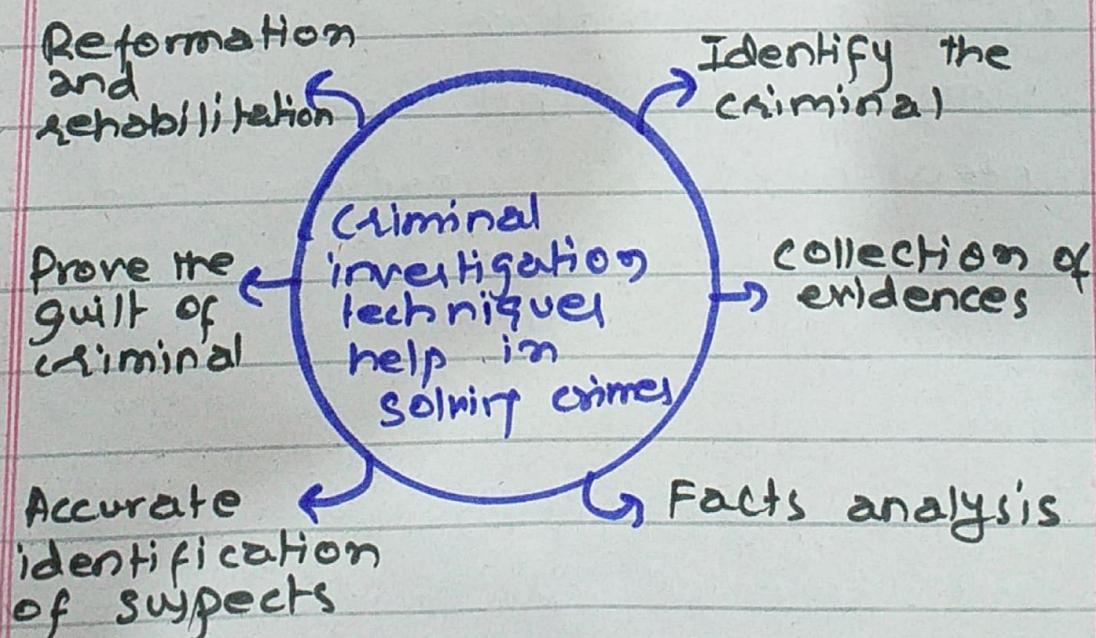 Reformation
and
rehabilitation
Identify the
criminal
Criminal
investigation
techniques
help in
solving crimes
Prove the
guilt of
criminal
collection of
evidences
Accurate
identification
of suspects
Facts analysis